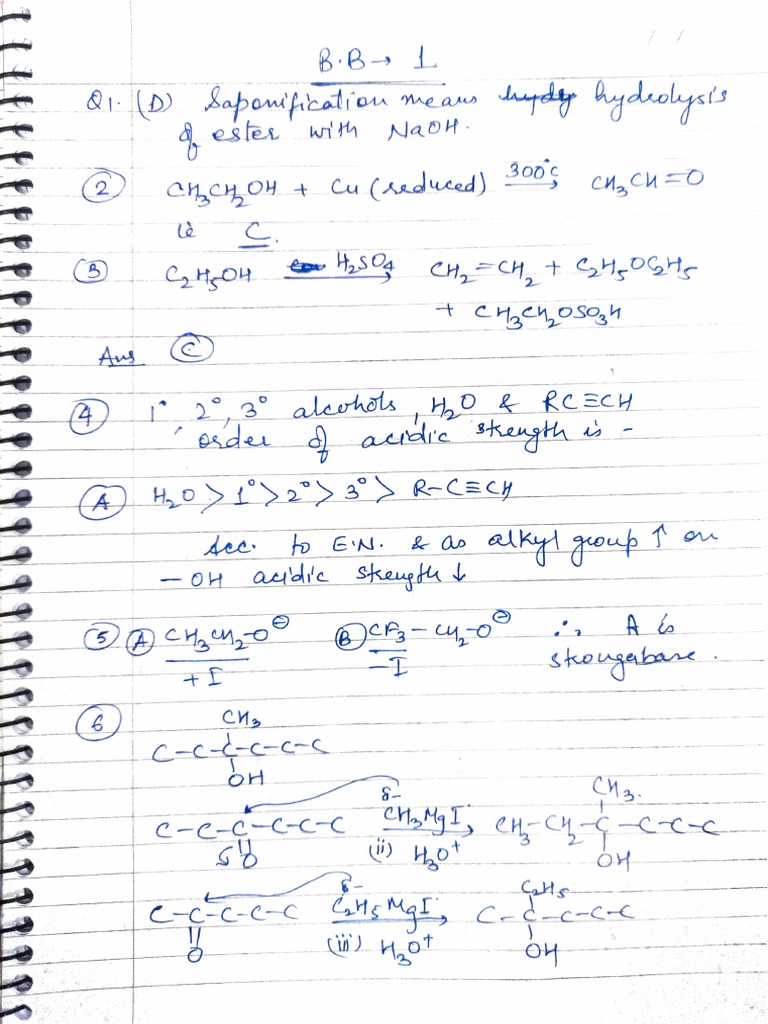 B.B → 1
Q1. (D) Saponification means hydrolysis
of ester with NaOH.
② CH3CH2OH + Cu (reduced) 300°C → CH3CH=O
is C.
③ C2H5OH H2SO4 → CH2=CH2 + C2H5OC2H5
+ CH3CH2OSO3H
Ans Ⓒ
④ 1°, 2°, 3° alcohols, H2O & RC≡CH
order of acidic strength is -
Ⓐ H2O > 1° > 2° > 3° > R-C≡CH
Acc. to E.N. & as alkyl group ↑ on
- OH acidic strength ↓
⑤ Ⓐ CH3CH2-O⊖ Ⓑ CF3-CH2-O⊖ ∴ A is
+I -I strongerbase.
⑥ CH3
C-C-C-C-C-C
OH
δ- CH3.
C-C-C-C-C-C CH3MgI → CH3-CH2-C-C-C-C
O (ii) H3O+ OH
δ- C2H5
C-C-C-C-C C2H5MgI → C-C-C-C-C
O (iii) H3O+ OH